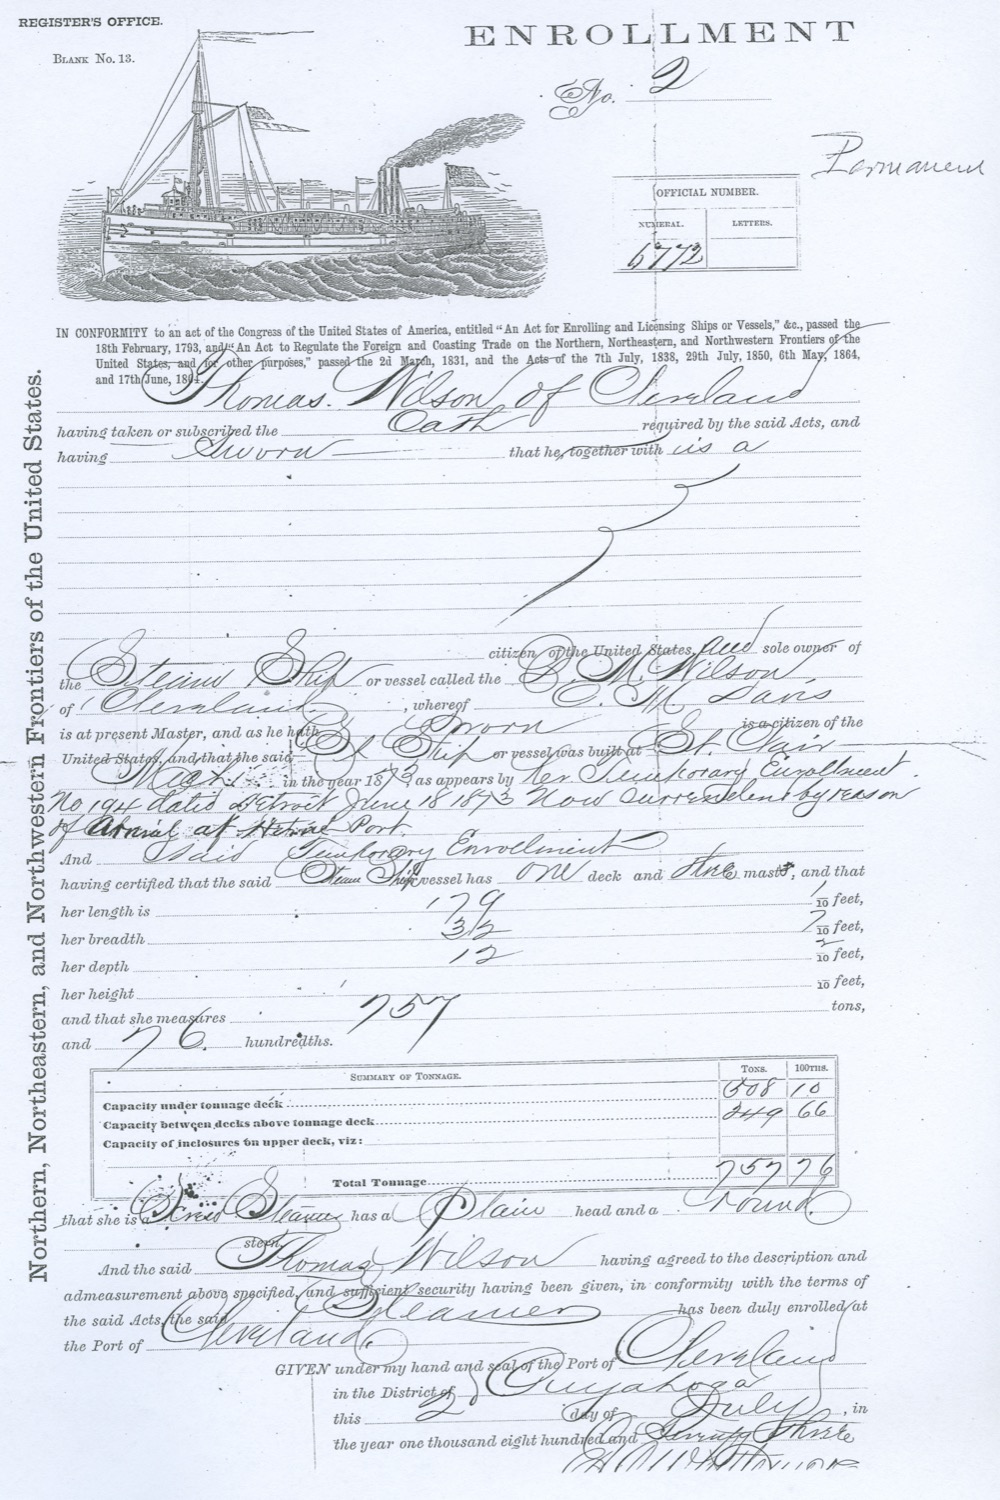 REGISTER'S OFFICE.
BLANK No. 13.
ENROLLMENT
No. 2
Permanent
OFFICIAL NUMBER.
NUMERAL. LETTERS.
6772
IN CONFORMITY to an act of the Congress of the United States of America, entitled "An Act for Enrolling and Licensing Ships or Vessels," &c., passed the
18th February, 1793, and "An Act to Regulate the Foreign and Coasting Trade on the Northern, Northeastern, and Northwestern Frontiers of the
United States, and for other purposes," passed the 2d March, 1831, and the Acts of the 7th July, 1838, 29th July, 1850, 6th May, 1864,
and 17th June, 1864.
Thomas Wilson of Cleveland
having taken or subscribed the Oath required by the said Acts, and
having Sworn that he, together with is a
citizen of the United States, and sole owner of
the Steam Ship or vessel called the D. M. Wilson
of Cleveland, whereof C. M. Davis
is at present Master, and as he hath Sworn is a citizen of the
United States, and that the said St Ship or vessel was built at St. Clair
Mich in the year 1873, as appears by her Temporary Enrollment
No 194 dated Detroit June 18 1873 Now Surrendered by reason
of Arrival at Home Port.
And said Temporary Enrollment
having certified that the said Steam Ship vessel has one deck and three masts, and that
her length is 179 1/10 feet,
her breadth 32 7/10 feet,
her depth 12 2/10 feet,
her height /10 feet,
and that she measures 757 tons,
and 76 hundredths.
SUMMARY OF TONNAGE. TONS. 100THS.
Capacity under tonnage deck 508 10
Capacity between decks above tonnage deck 249 66
Capacity of inclosures on upper deck, viz:
Total Tonnage 757 76
that she is a Screw Steamer has a Plain head and a round
stern
And the said Thomas Wilson having agreed to the description and
admeasurement above specified, and sufficient security having been given, in conformity with the terms of
the said Acts, the said Steamer has been duly enrolled at
the Port of Cleveland.
GIVEN under my hand and seal of the Port of Cleveland
in the District of Cuyahoga
this 2 day of July, in
the year one thousand eight hundred and Seventy Three
Northern, Northeastern, and Northwestern Frontiers of the United States.